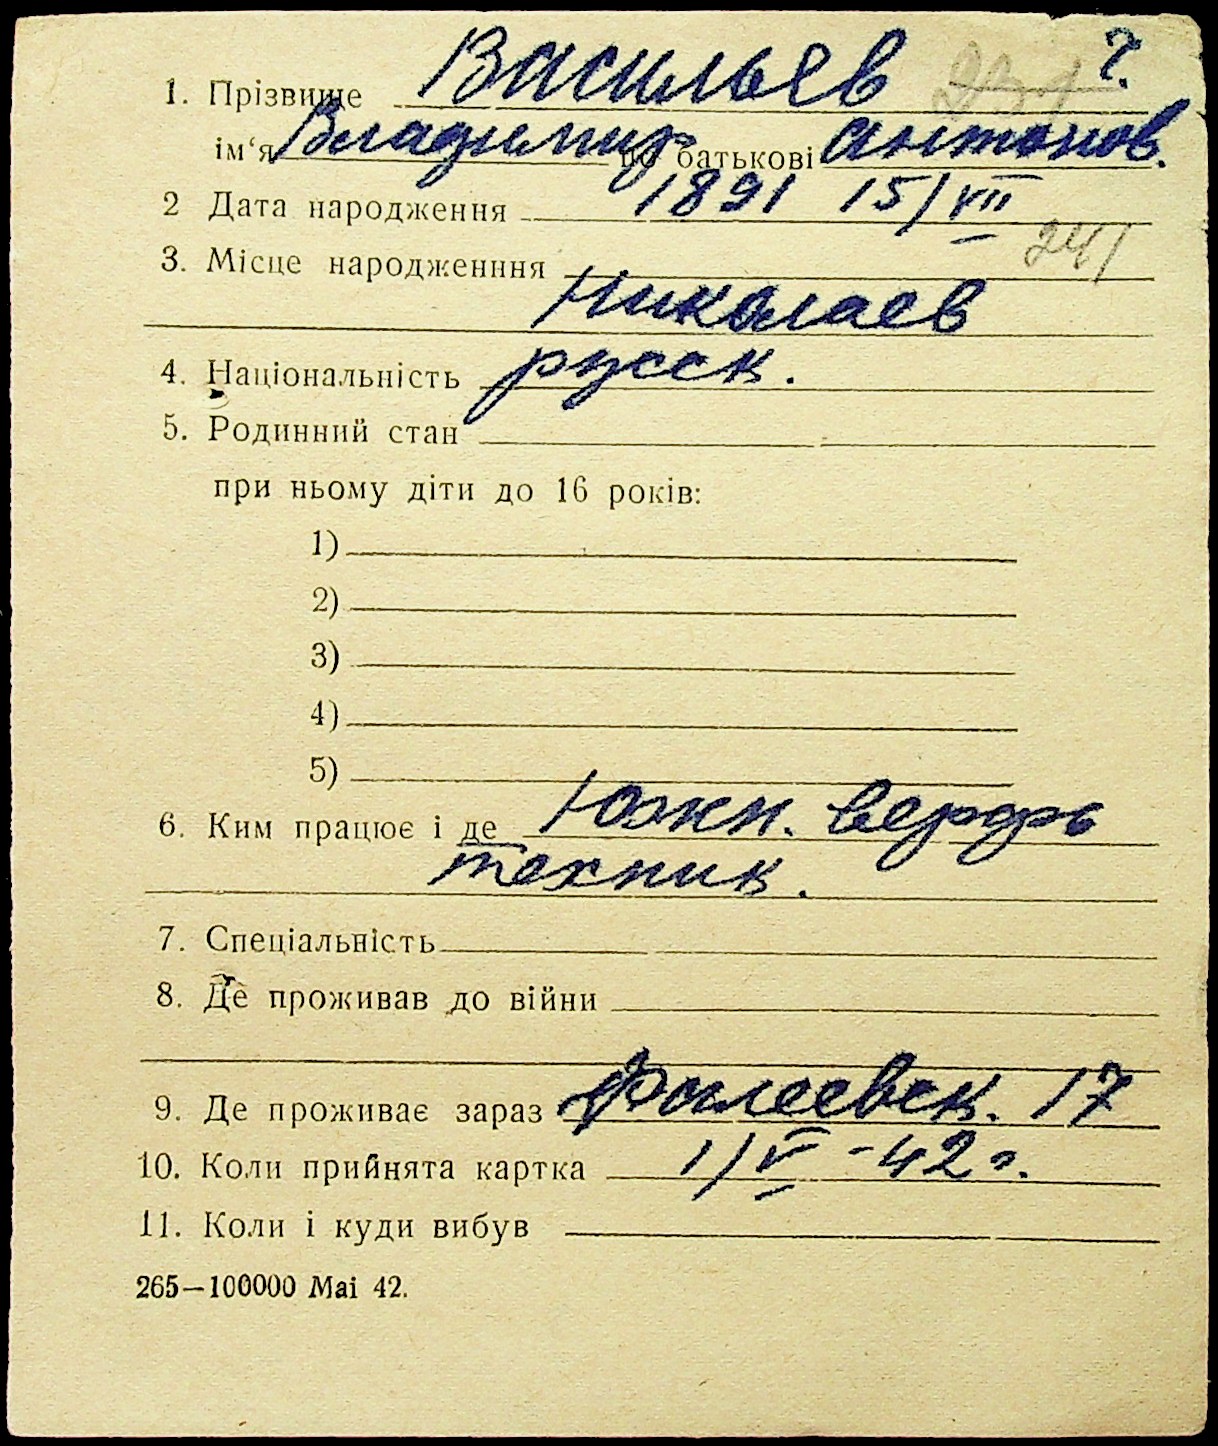 1. Прізвище Васильев ч.
ім‘я Владимир по батькові Антонов.
2 Дата народження 1891 15/VII
3. Місце народженння 241
Николаев
4. Національність русск.
5. Родинний стан
при ньому діти до 16 років:
1)
2)
3)
4)
5)
6. Ким працює і де Южн. верфь
техник.
7. Спеціальність
8. Де проживав до війни
9. Де проживає зараз Фалеевск. 17
10. Коли прийнята картка 1/V -42 г.
11. Коли і куди вибув
265—100000 Mai 42.